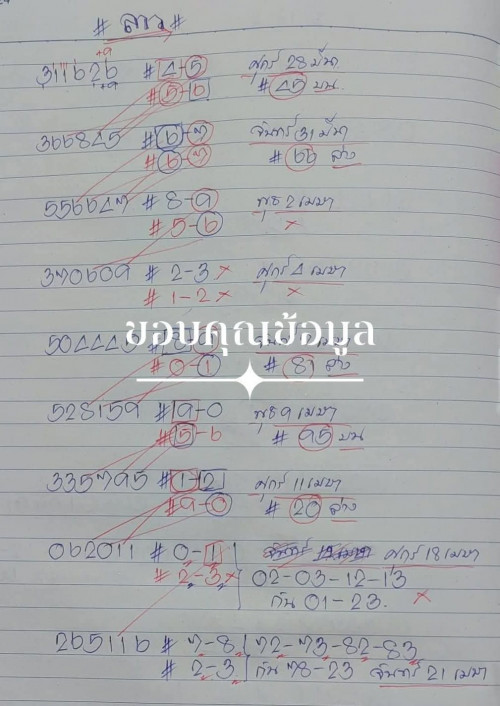 # ลาว #
+9
311626 # 4-5 ศุกร์ 28 มีนา
+9 # 5-6 # 45 บน
366845 # 6-7 จันทร์ 31 มีนา
# 6-7 # 66 ล่าง
556647 # 8-9 พุธ 2 เมษา
# 5-6 ×
370609 # 2-3 × ศุกร์ 4 เมษา
# 1-2 × ×
ขอบคุณข้อมูล
# 0-1 # 81 ล่าง
528159 # 9-0 พุธ 9 เมษา
# 5-6 # 95 บน
335795 # 1-2 ศุกร์ 11 เมษา
# 9-0 # 20 ล่าง
062011 # 0-1 ศุกร์ 18 เมษา
# 2-3 × 02-03-12-13
กัน 01-23. ×
265116 # 7-8 72-73-82-83
# 2-3 กัน 78-23 จันทร์ 21 เมษา